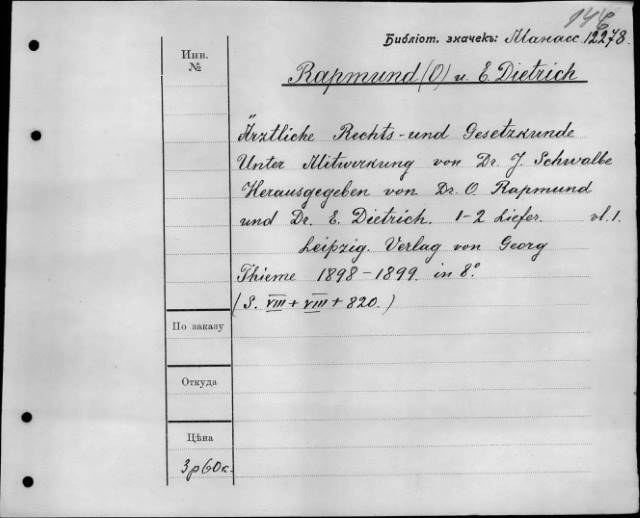 146
Библіот. значекъ: Манасс. 12278.
Инв.
№
Rapmund (O) u. E. Dietrich
Ärztliche Rechts- und Gesetzkunde
Unter Mitwirkung von Dr. J. Schwalbe
Herausgegeben von Dr. O. Rapmund
und Dr. E. Dietrich. 1-2 Liefer. vl. 1.
Leipzig. Verlag von Georg
Thieme 1898-1899. in 8.°
(S. VIII + VIII + 820.)
По заказу
Откуда
Цѣна
3 р 60 к.